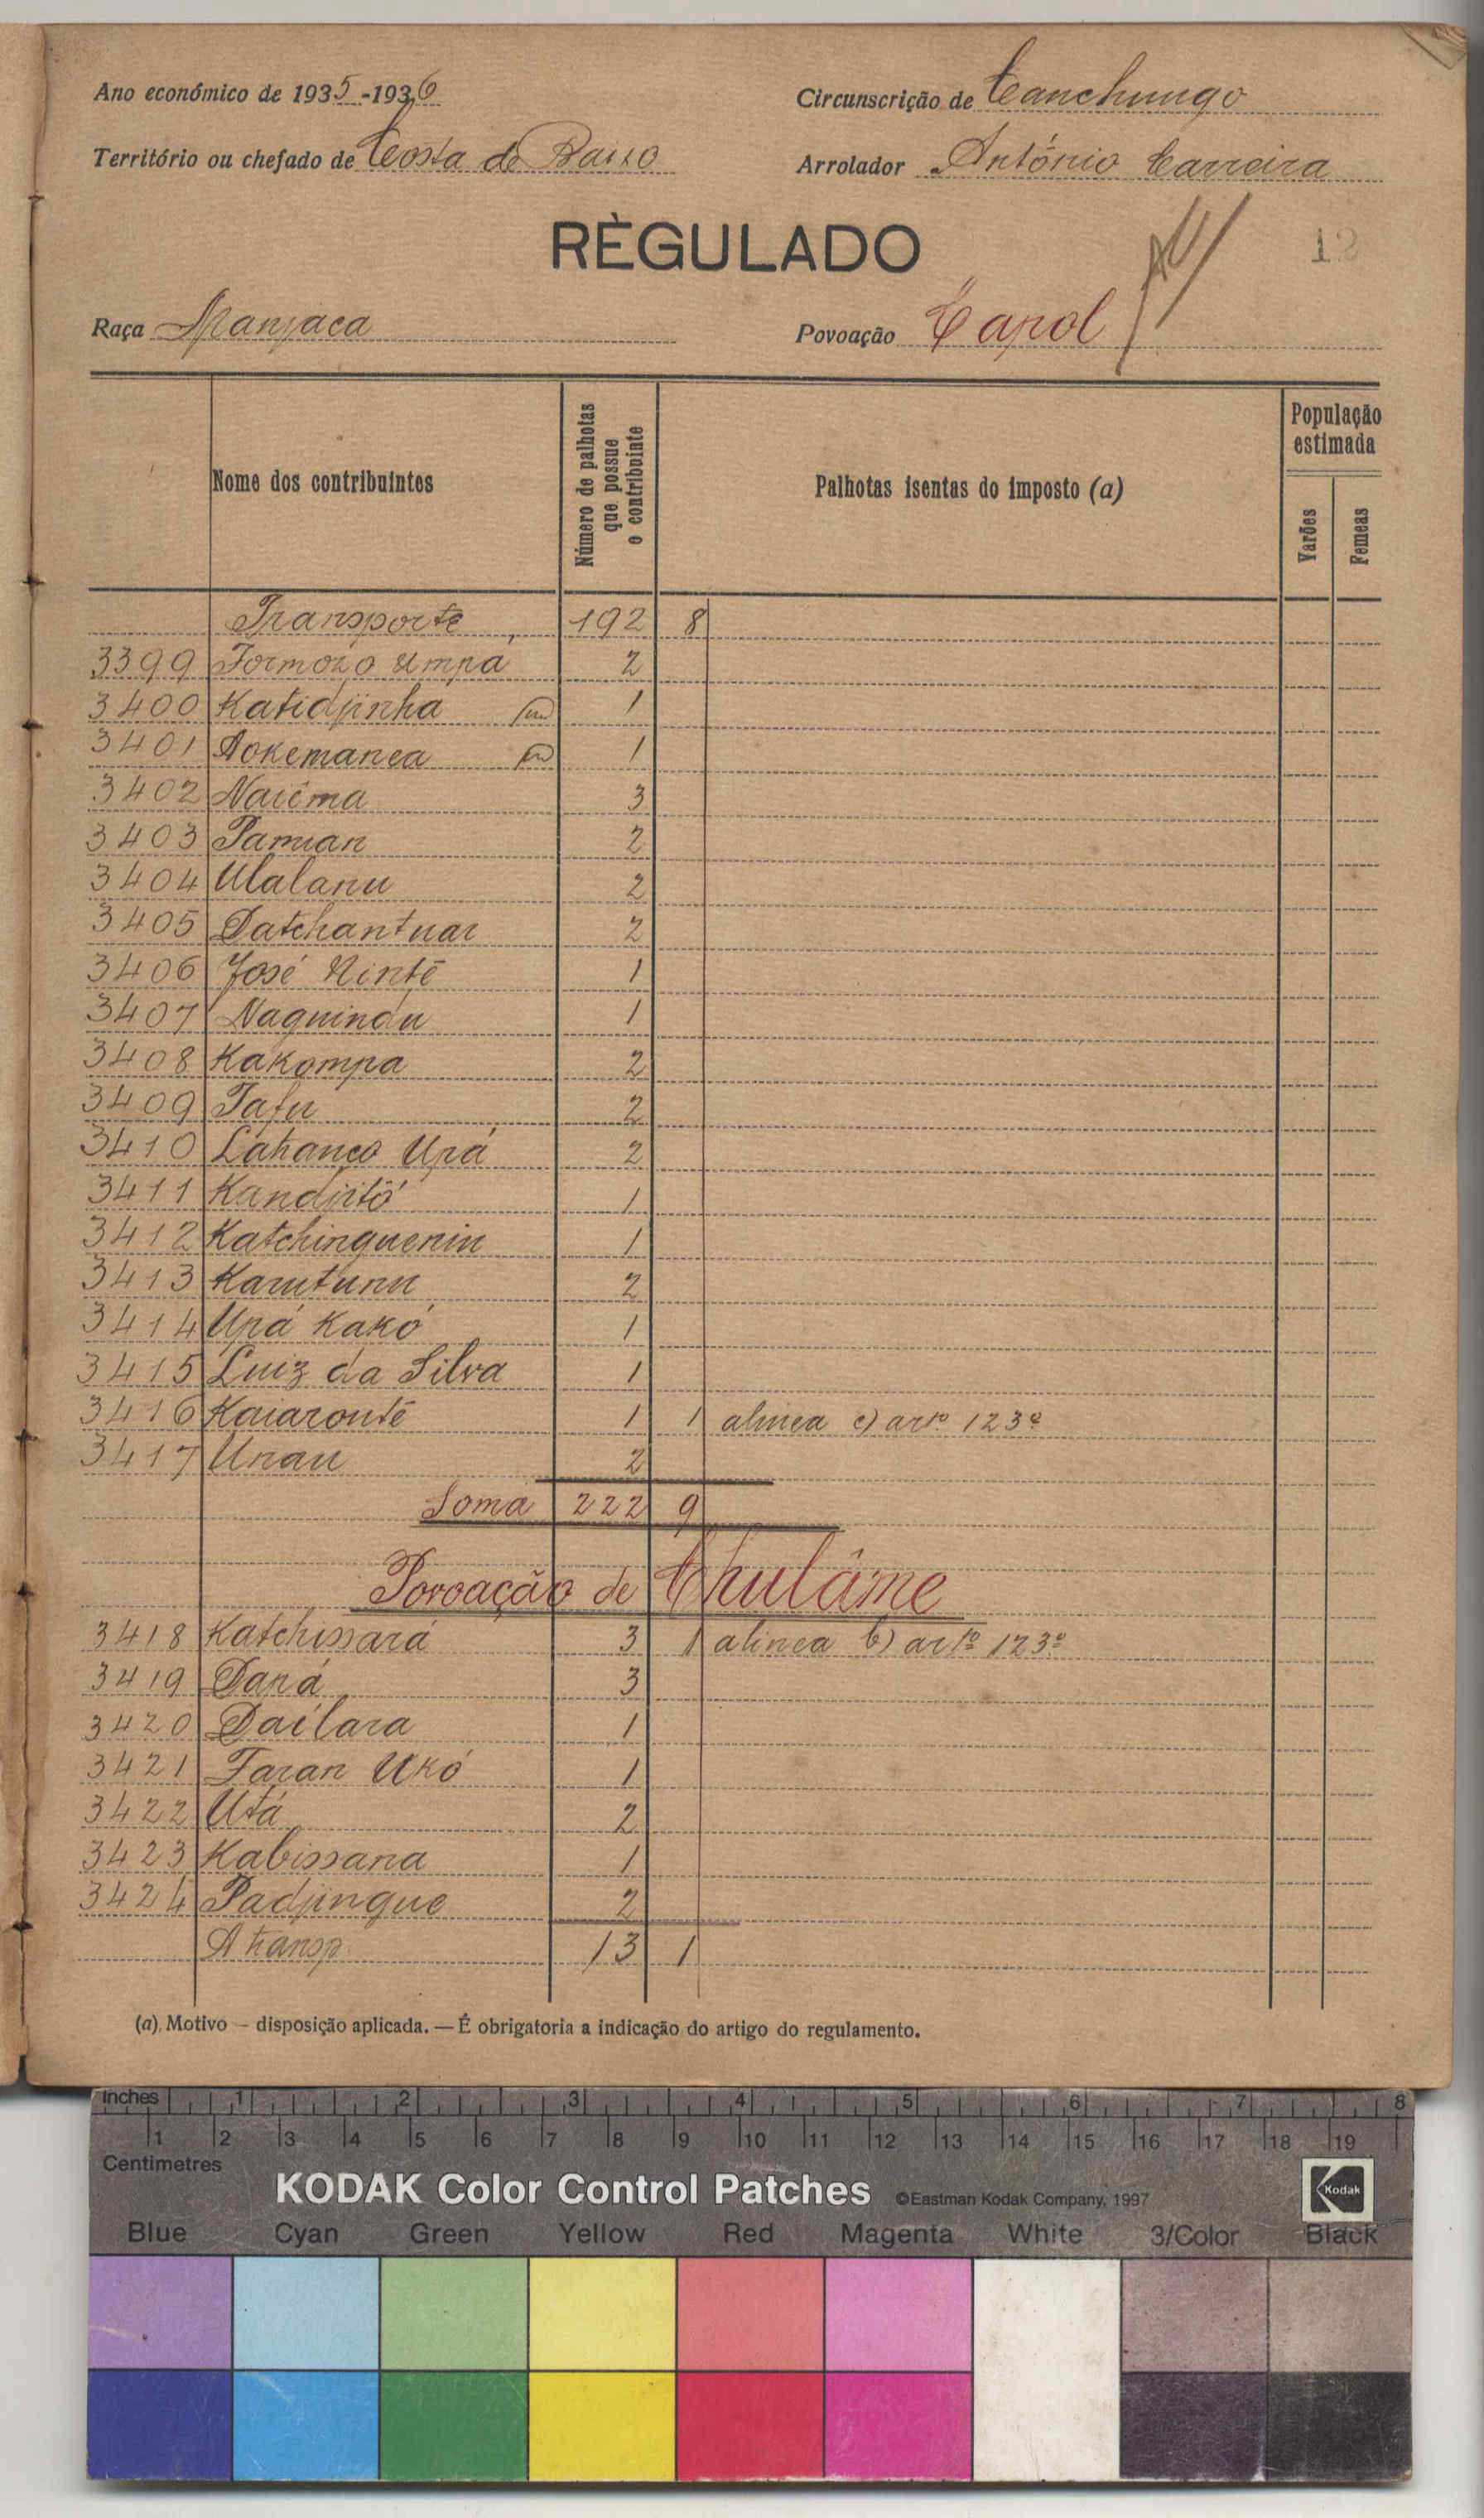 Ano económico de 1935-1936
Circunscrição de Canchungo
Território ou chefado de Costa de Baixo
Arrolador António Carreira
RÈGULADO
12
Raça Manjaca
Povoação Capol
Nome dos contribuintes
Número de palhotas que possue o contribuinte
Palhotas isentas do imposto (a)
População estimada
Varões
Femeas
Transporte 192 8
3399 Formozo Umpá 2
3400 Katidjinha 1
3401 Aokemanca 1
3402 Naiéma 3
3403 Pamian 2
3404 Ulalanu 2
3405 Datchantuar 2
3406 José Nintê 1
3407 Naguindu 1
3408 Kakompa 2
3409 Tafu 2
3410 Lahanco Upá 2
3411 Kandjitó 1
3412 Katchinguenin 1
3413 Karutunu 2
3414 Upá Kakó 1
3415 Luiz da Silva 1
3416 Kaiarontê 1 1 alinea c) artº. 123º
3417 Unau 2
Soma 222 9
Povoação de Chulâme
3418 Katchissará 3 1 alinea b) artº 123º
3419 Daná 3
3420 Dailara 1
3421 Faran Ukó 1
3422 Utá 2
3423 Kabissana 1
3424 Padjingue 2
A transp. 13 1
(a) Motivo — disposição aplicada. — É obrigatoria a indicação do artigo do regulamento.
Inches 1 2 3 4 5 6 7 8
1 2 3 4 5 6 7 8 9 10 11 12 13 14 15 16 17 18 19
Centimetres
KODAK Color Control Patches ©Eastman Kodak Company, 1997 Kodak
Blue Cyan Green Yellow Red Magenta White 3/Color Black